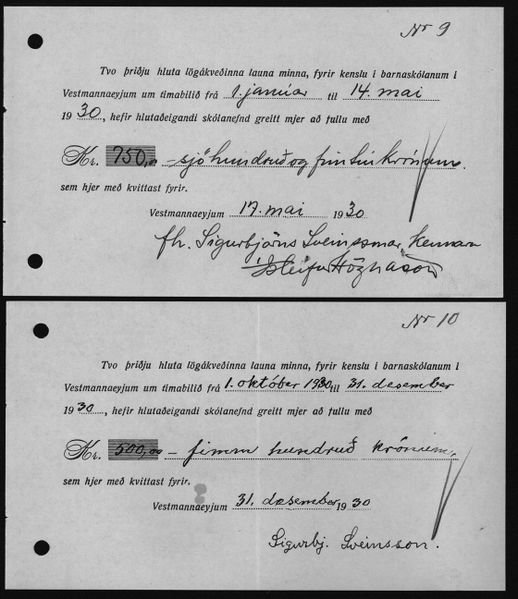 Nr 9
Tvo þriðju hluta lögákveðinna launa minna, fyrir kenslu í barnaskólanum í
Vestmannaeyjum um tímabilið frá 1. janúar til 14. maí
1930, hefir hlutaðeigandi skólanefnd greitt mjer að fullu með
Kr. 750,00 – sjö hundruð og fimtíu krónum.
sem hjer með kvittast fyrir.
Vestmannaeyjum 17. maí 1930
fh. Sigurbjörns Sveinssonar, kennara
Ísleifur Högnason
Nr 10
Tvo þriðju hluta lögákveðinna launa minna, fyrir kenslu í barnaskólanum í
Vestmannaeyjum um tímabilið frá 1. október 1930 til 31. desember
1930, hefir hlutaðeigandi skólanefnd greitt mjer að fullu með
Kr. 500,00 – fimm hundruð krónum,
sem hjer með kvittast fyrir.
Vestmannaeyjum 31. desember 1930
Sigurbj. Sveinsson.